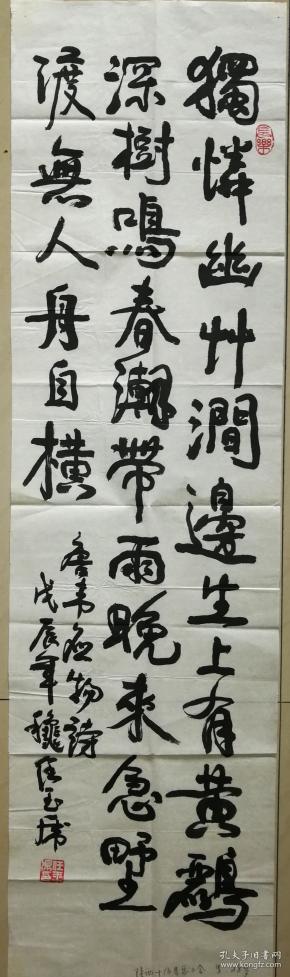 獨憐幽艸澗邊生上有黃鸝
深樹鳴春潮帶雨晚來急野
渡無人舟自橫
書韋應物詩
戊辰年
孔夫子旧书网